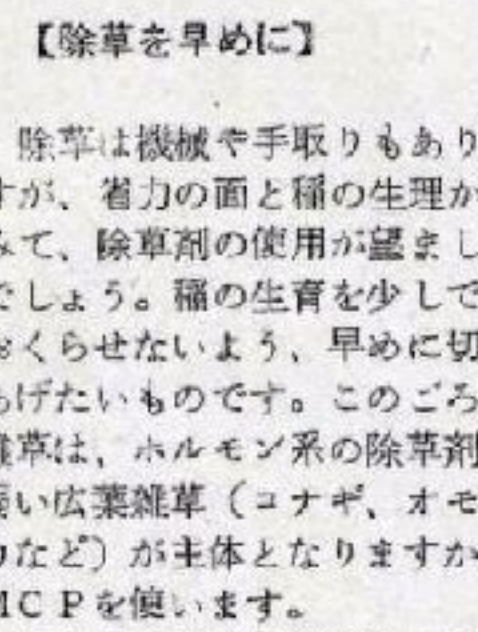 【除草を早めに】
除草は機械や手取りもあり
すが、省力の面と稲の生理か
みて、除草剤の使用が望まし
でしょう。稲の生育を少しで
おくらせないよう、早めに切
あげたいものです。このごろ
雑草は、ホルモン系の除草剤
い広葉雑草（コナギ、オモ
カなど）が主体となりますか
MCPを使います。